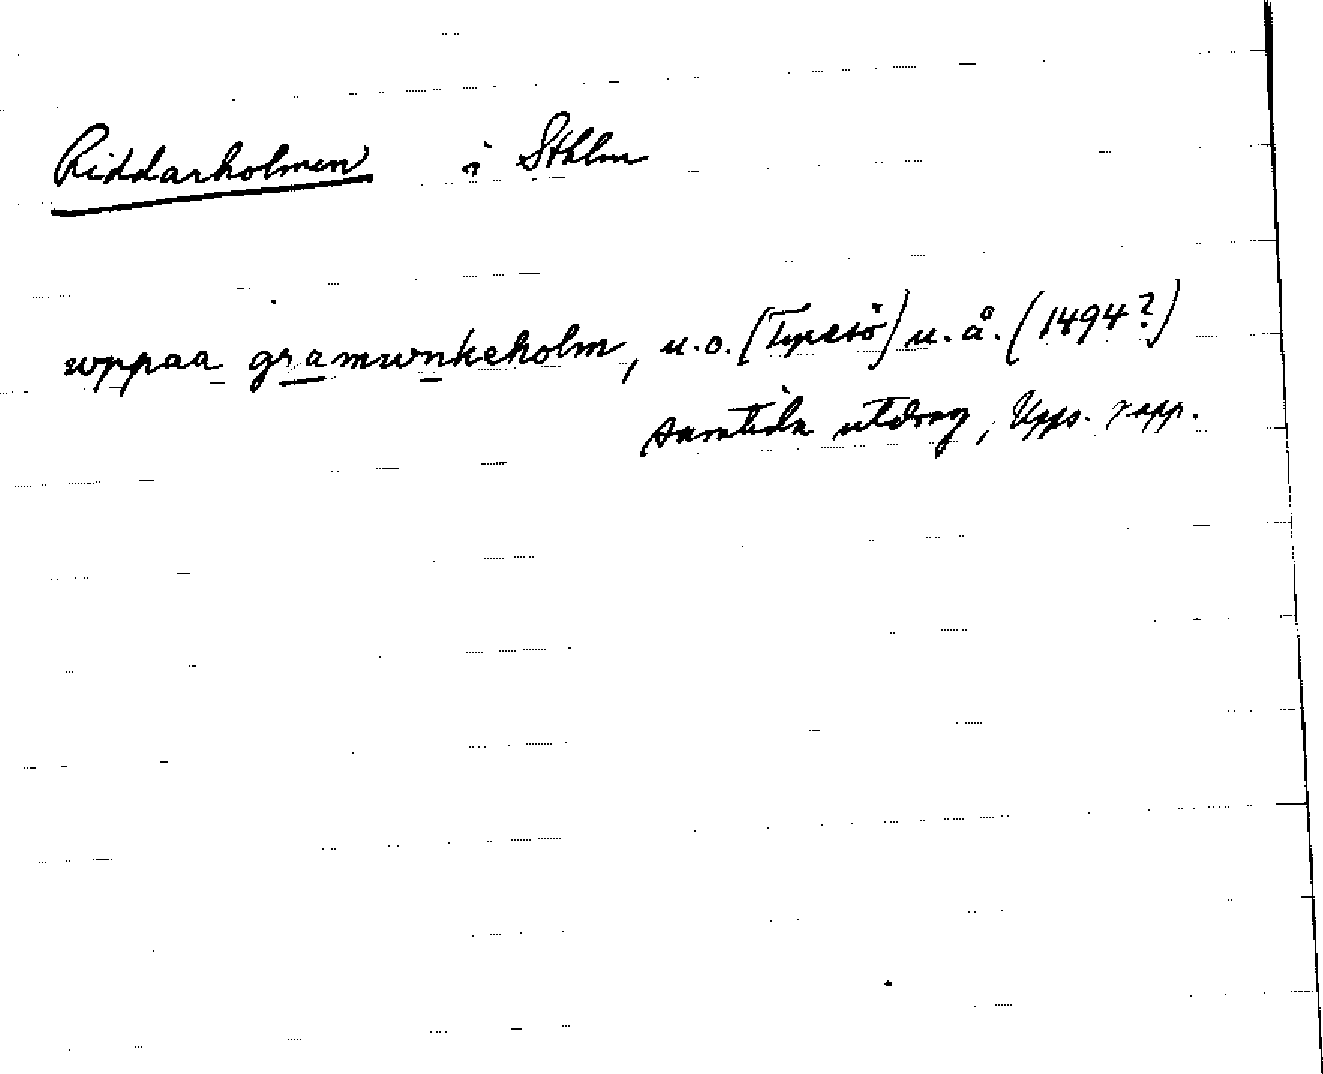 Riddarholmen i Sthlm
wppaa gramwnkeholm, u.o. (Tyresö) u.å. (1494?)
samtida utdrag, Upps. rapp.